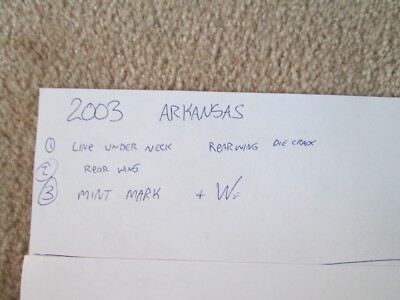 2003 ARKANSAS
① LINE UNDER NECK REAR WING DIE CRACK
② REAR WING
③ MINT MARK + W